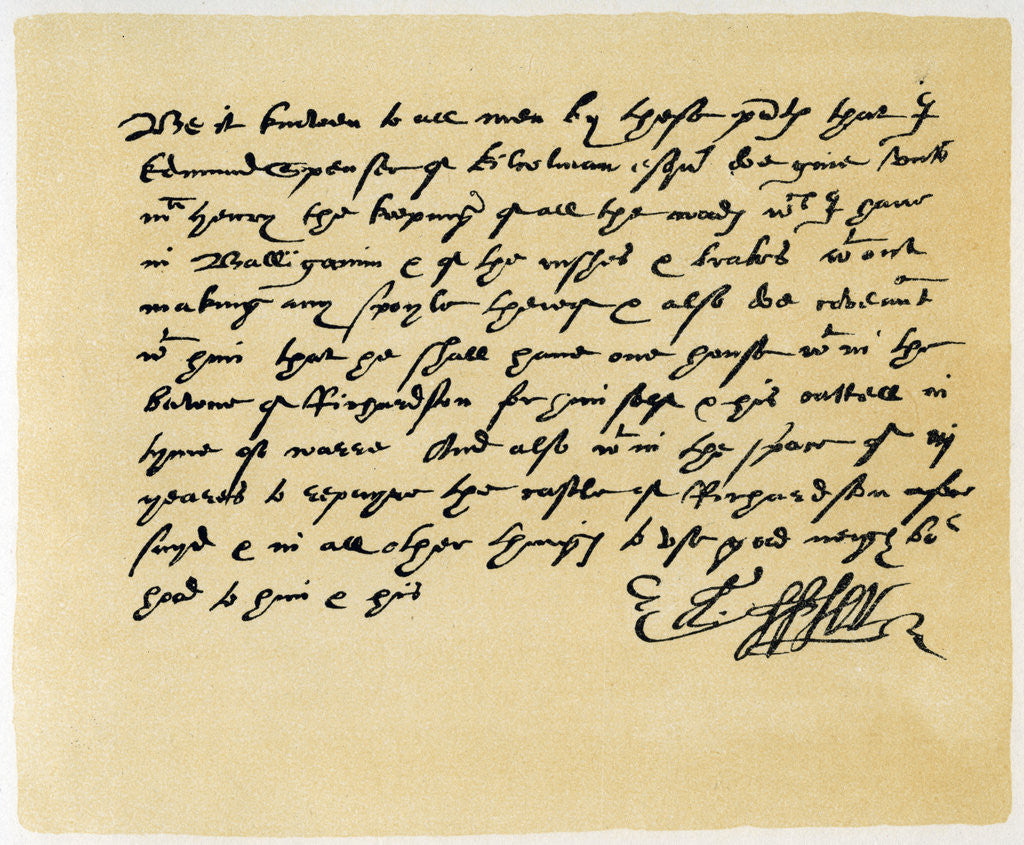 Be it knowen to all men by these pn̄ts that I
Edmund Spenser of Kilcolman esqr doe giue vnto
mr Henry the keeping of all the woods wch I haue
in Balliganim & of the rushes & brakes wthout
making any spoyle therof & also doe coueānt
wth him that he shall haue one house wthin the
bawne of Richardston for him self & his cattell in
tyme of warre And also wthin the space of vij
yeares to repayre the castle of Richardston afore
sayd & in all other things to vse good neighbor
hood to him & his
Ed. Spser